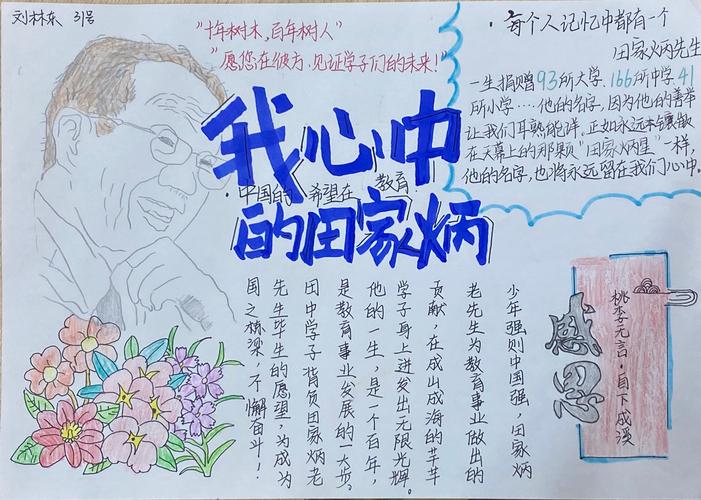 刘林东 31号
"十年树木,百年树人"
"愿您在彼方,见证学子们的未来!"
我心中
·中国的 希望在 教育·
的田家炳
·每个人记忆中都有一个
田家炳先生
一生捐赠93所大学 166所中学 41
所小学····他的名字,因为他的善举
让我们耳熟能详。正如永远
在天幕上的那颗"田家炳星"一样,
他的名字,也将永远留在我们心中。
少年强则中国强,田家炳
老先生为教育事业做出的
贡献,在成山成海的莘莘
学子身上迸发出无限光辉。
他的一生,是一个百年,
是教育事业发展的一大步。
田中学子背负田家炳老
先生毕生的愿望,为成为
国之栋梁,不懈奋斗!
感恩
桃李无言·自下成溪